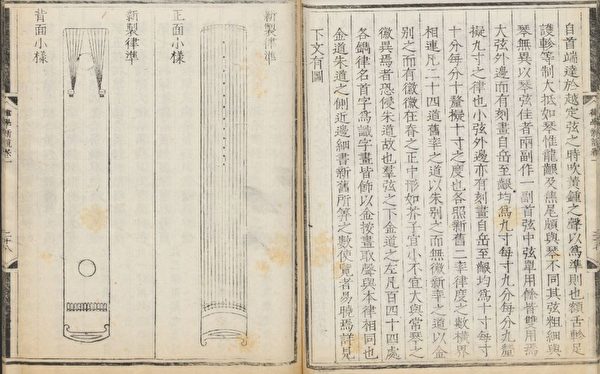 自首端達於越定弦之時吹黃鍾之聲以爲準則也額舌軫足
護軫等制大抵如琴惟龍齦及焦尾頗與琴不同其弦粗細與
琴無異以琴弦佳者兩副作一副首弦中弦單用餘皆雙用焉
大弦外邊而有刻畫自岳至齦均爲九寸每寸九分每分九釐
擬九寸之律也小弦外邊亦有刻畫自岳至齦均爲十寸每寸
十分每分十釐擬十寸之度也各照新舊二率律度之數橫界
相連凡二十四道舊率之道以朱別之而無徽新率之道以金
別之而有徽徽在春之正中形如芥子宜小不宜大與常琴之
徽異焉者恐侵朱道故也羣弦之下金道之左凡百四十四處
各鐫律名首字爲識字畫皆飾以金按畫取聲與本律相同也
金道朱道之側近邊細書新舊所算之數使覽者易曉焉詳見
下文有圖
新製律準
正面小樣
新製律準
背面小樣